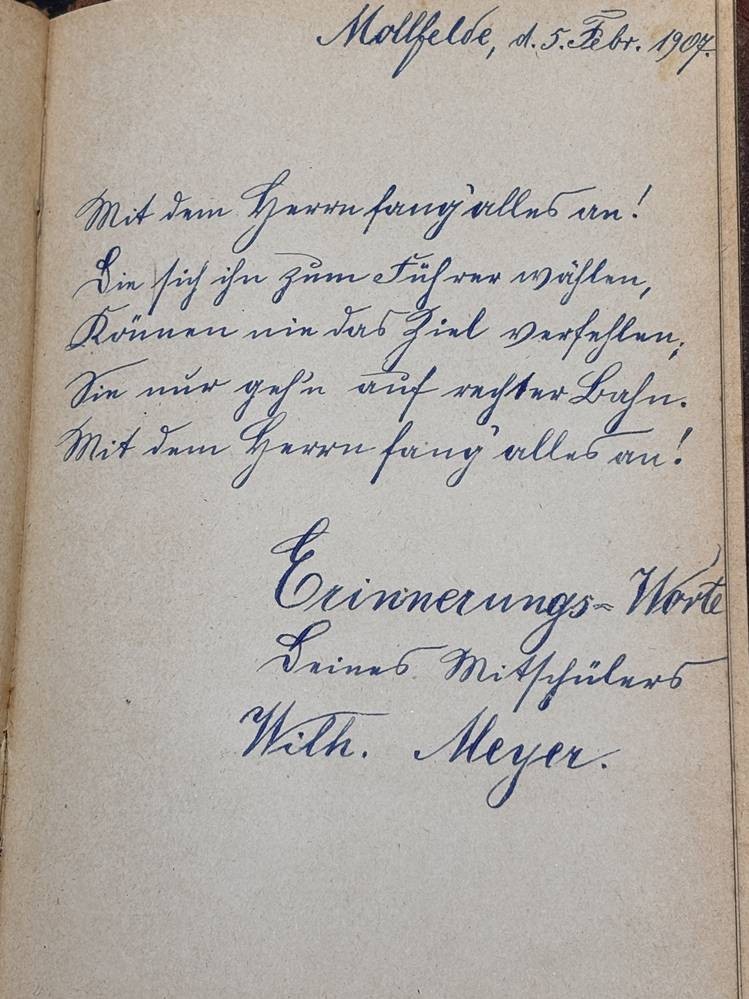 Mollfelde, d. 5. Febr. 1907.
Mit dem Herrn fang' alles an!
Die sich ihn zum Führer wählen,
Können nie das Ziel verfehlen;
Sie nur geh'n auf rechter Bahn.
Mit dem Herrn fang' alles an!
Erinnerungs=Worte
Deines Mitschülers
Wilh. Meyer.